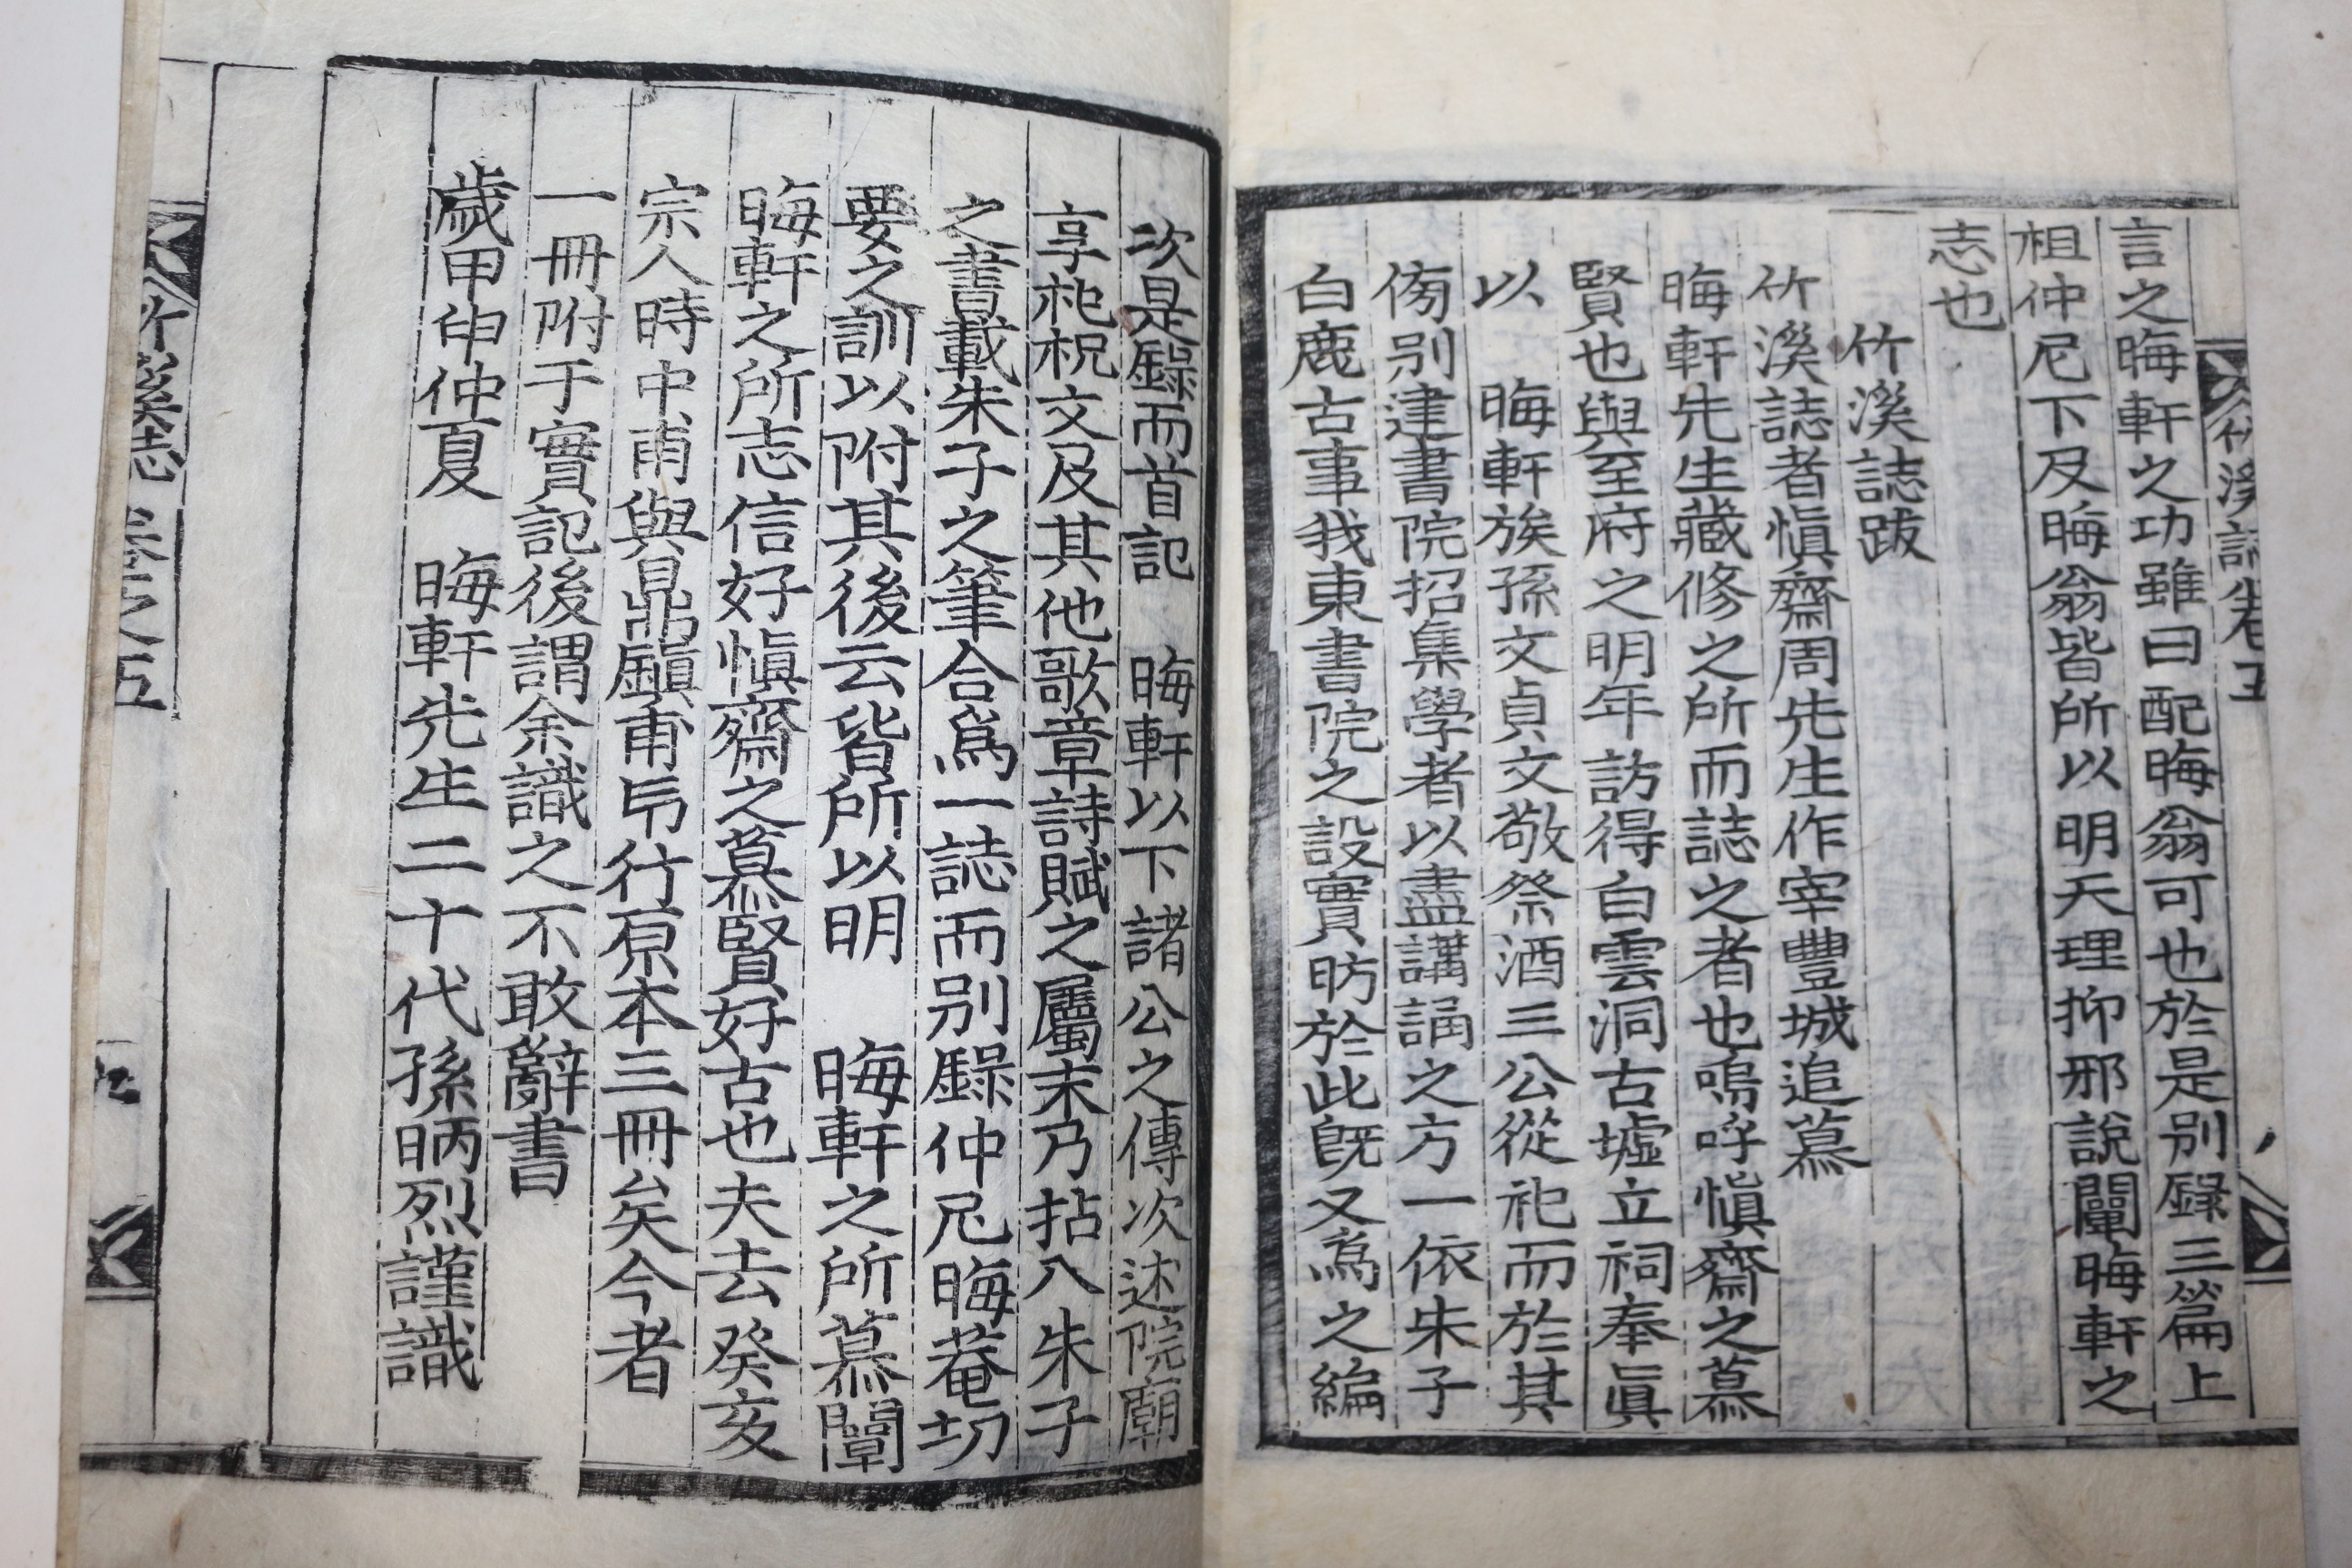 言之晦軒之功雖曰配晦翁可也於是別錄三篇上
祖仲尼下及晦翁皆所以明天理抑邪說闡晦軒之
志也
竹溪誌跋
竹溪誌者愼齋周先生作宰豐城追慕
晦軒先生藏修之所而誌之者也嗚呼愼齋之慕
賢也與至府之明年訪得白雲洞古墟立祠奉眞
以 晦軒族孫文貞文敬祭酒三公從祀而於其
傍別建書院招集學者以盡講誦之方一依朱子
白鹿古事我東書院之設實昉於此旣又爲之編
次是錄而首記 晦軒以下諸公之傳次述院廟
享祀祝文及其他歌章詩賦之屬末乃拈入朱子
之書載朱子之筆合爲一誌而別錄仲尼晦菴切
要之訓以附其後云皆所以明 晦軒之所慕闡
晦軒之所志信好愼齋之慕賢好古也夫去癸亥
宗人時中甫與鼎鎭甫印行原本三冊矣今者
一冊附于實記後謂余識之不敢辭書
歲甲申仲夏 晦軒先生二十代孫昞烈謹識
竹溪志 卷之五